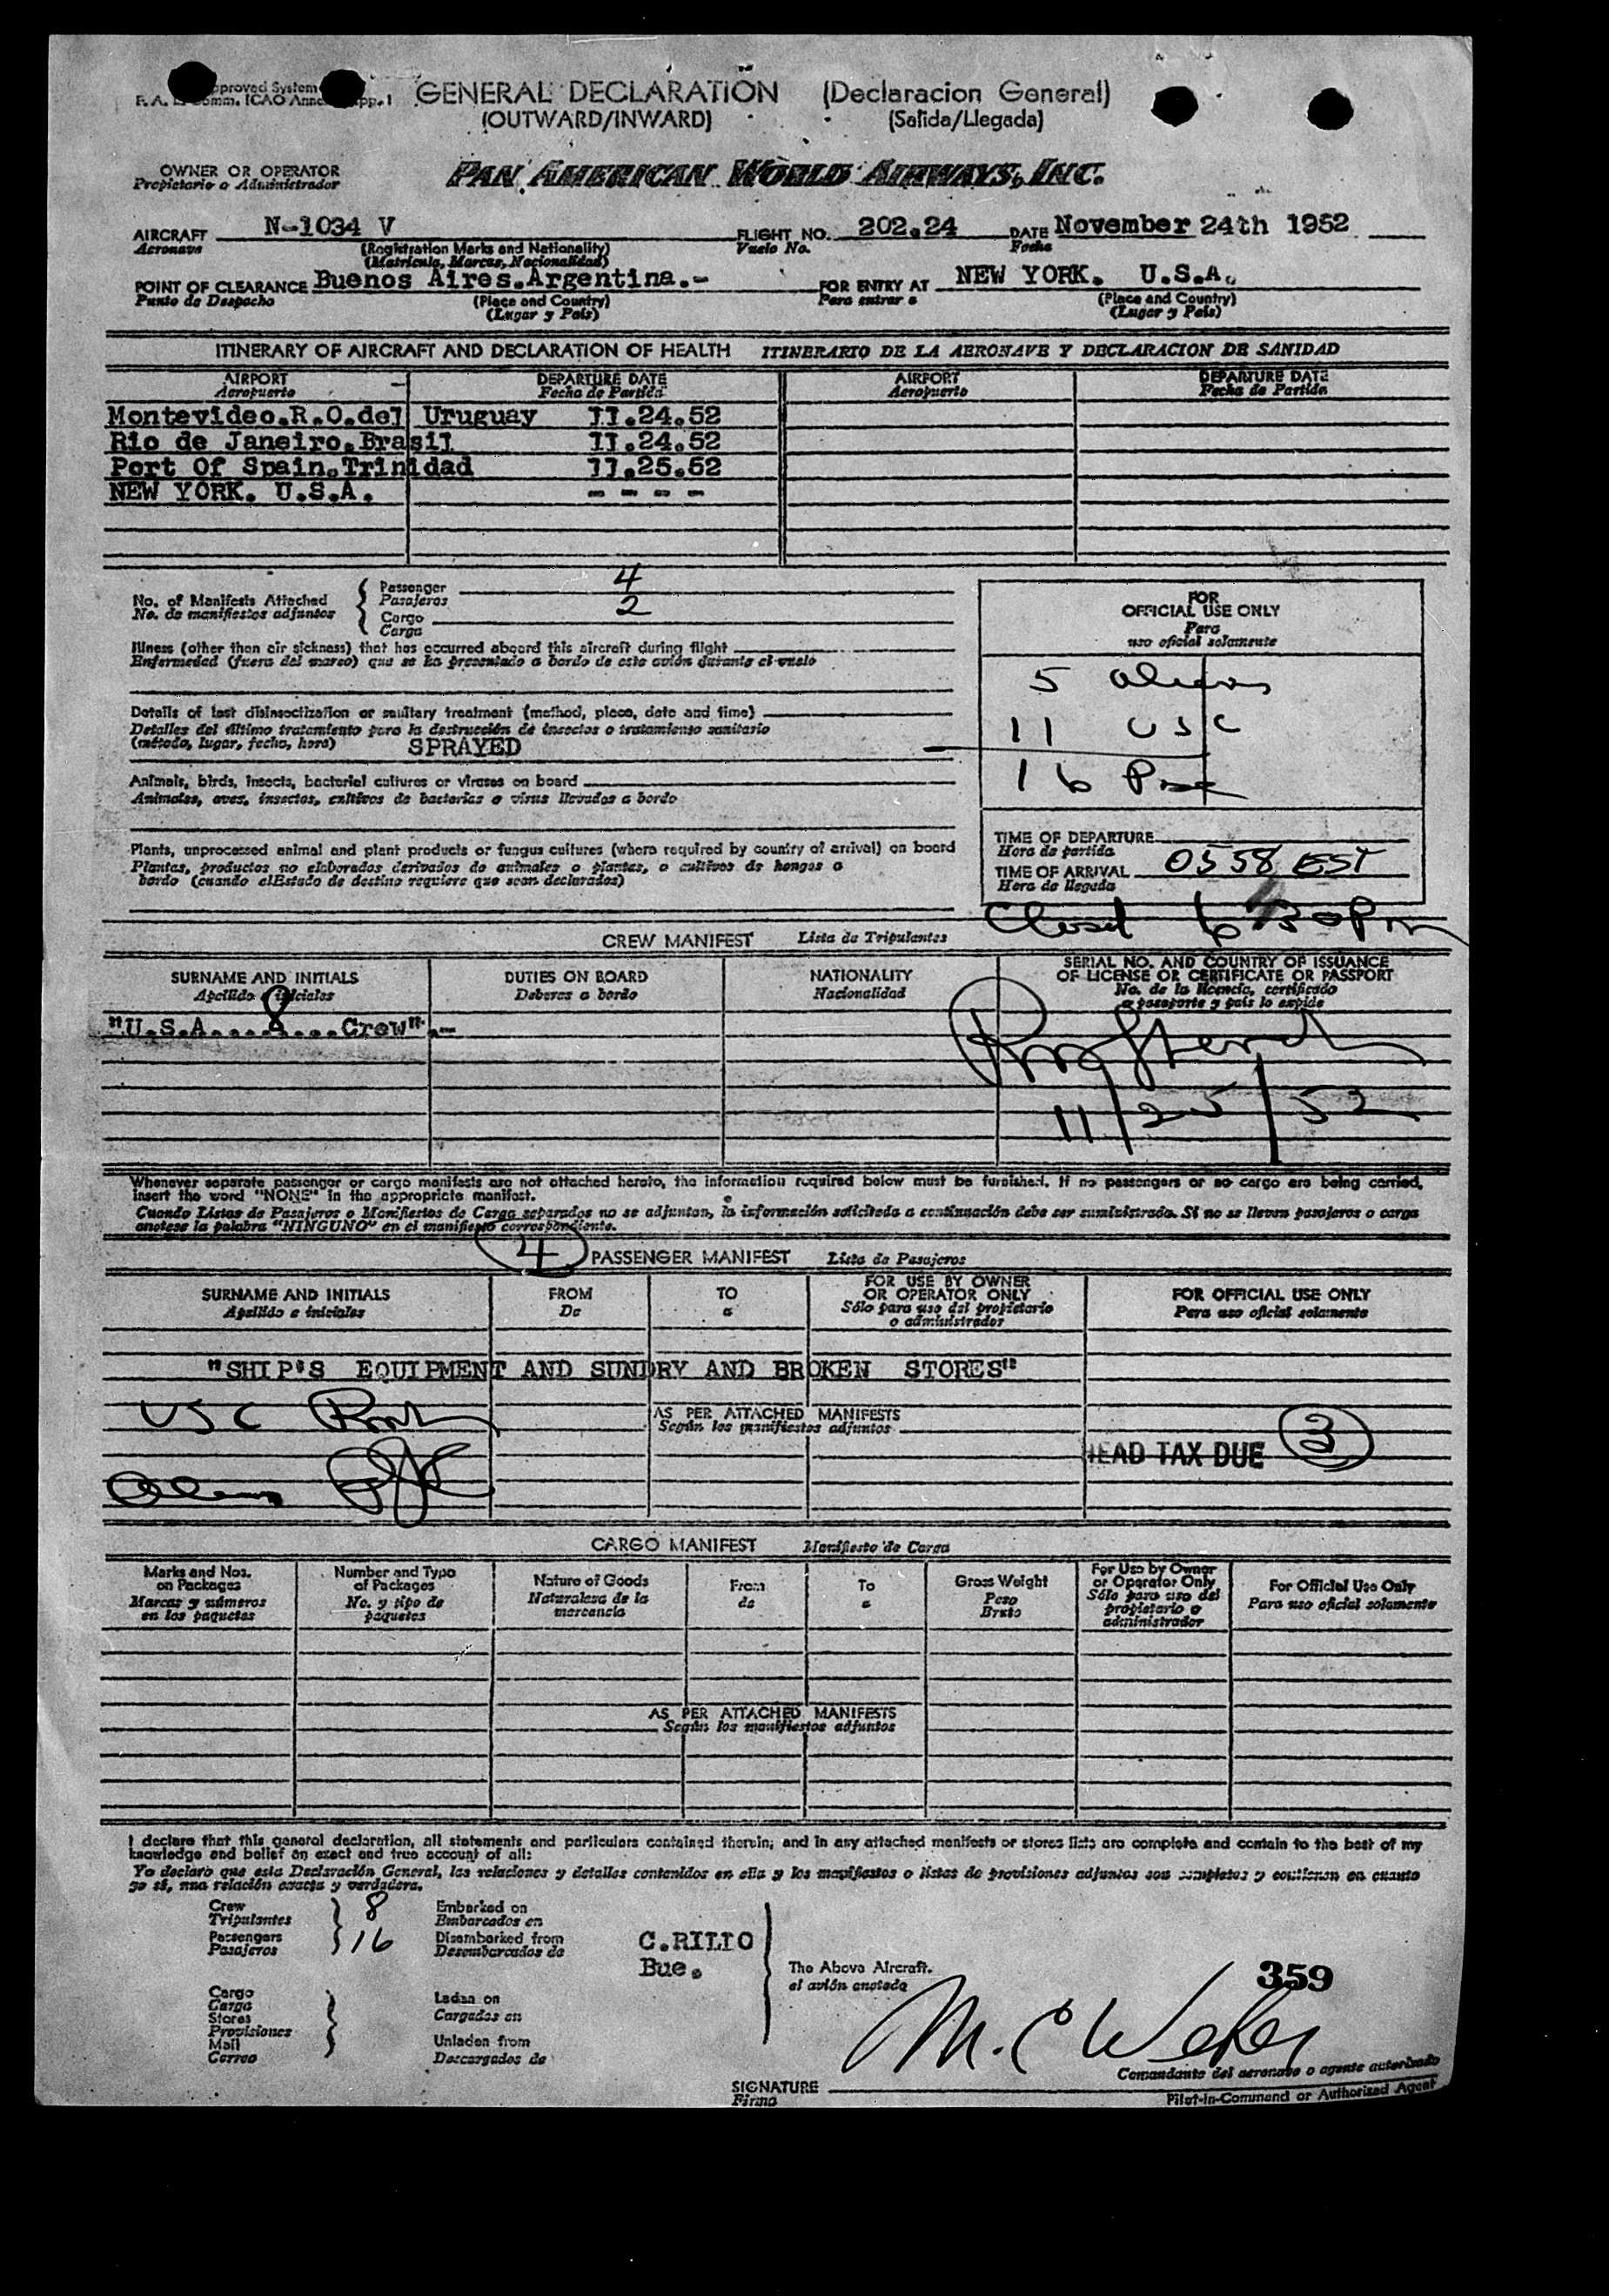 Approved System
F. A. L. Comm. ICAO Annex App. I
GENERAL DECLARATION (Declaracion General)
(OUTWARD/INWARD) (Salida/Llegada)
OWNER OR OPERATOR
Propietario o Administrador
PAN AMERICAN WORLD AIRWAYS, INC.
AIRCRAFT N-1034 V FLIGHT NO. 202.24 DATE November 24th 1952
Aeronave (Registration Marks and Nationality) Vuelo No. Fecha
(Matricula, Marcas, Nacionalidad)
POINT OF CLEARANCE Buenos Aires.Argentina.- FOR ENTRY AT NEW YORK. U.S.A.
Punto de Despacho (Place and Country) Para entrar a (Place and Country)
(Lugar y País) (Lugar y País)
ITINERARY OF AIRCRAFT AND DECLARATION OF HEALTH ITINERARIO DE LA AERONAVE Y DECLARACION DE SANIDAD
AIRPORT DEPARTURE DATE AIRPORT DEPARTURE DATE
Aeropuerto Fecha de Partida Aeropuerto Fecha de Partida
Montevideo.R.O.del Uruguay 11.24.52
Rio de Janeiro.Brasil 11.24.52
Port Of Spain.Trinidad 11.25.52
NEW YORK. U.S.A. - - - -
No. of Manifests Attached Passenger 4
No. de manifiestos adjuntos Pasajeros
Cargo 2
Carga
FOR
OFFICIAL USE ONLY
Para
uso oficial solamente
Illness (other than air sickness) that has occurred aboard this aircraft during flight
Enfermedad (fuera del mareo) que se ha presentado a bordo de este avión durante el vuelo
5 aliens
11 USC
16 Pax
Details of last disinsectization or sanitary treatment (method, place, date and time)
Detalles del último tratamiento para la destrucción de insectos o tratamiento sanitario
(método, lugar, fecha, hora) SPRAYED
Animals, birds, insects, bacterial cultures or viruses on board
Animales, aves, insectos, cultivos de bacterias o virus llevados a bordo
Plants, unprocessed animal and plant products or fungus cultures (where required by country of arrival) on board
Plantas, productos no elaborados derivados de animales o plantas, o cultivos de hongos a
bordo (cuando elEstado de destino requiere que sean declarados)
TIME OF DEPARTURE
Hora de partida
TIME OF ARRIVAL 0558 EST
Hora de llegada
Closed 6 30 Pm
CREW MANIFEST Lista de Tripulantes
SURNAME AND INITIALS DUTIES ON BOARD NATIONALITY SERIAL NO. AND COUNTRY OF ISSUANCE
OF LICENSE OR CERTIFICATE OR PASSPORT
Apellido e iniciales Deberes a bordo Nacionalidad No. de la licencia, certificado
o pasaporte y país lo expide
"U.S.A....8....Crew".-
11/25/52
Whenever separate passenger or cargo manifests are not attached hereto, the information required below must be furnished. If no passengers or no cargo are being carried,
insert the word "NONE" in the appropriate manifest.
Cuando Listas de Pasajeros o Manifiestos de Carga separados no se adjuntan, la información solicitada a continuación debe ser suministrada. Si no se lleven pasajeros o carga
anotese la palabra "NINGUNO" en el manifiesto correspondiente.
4 PASSENGER MANIFEST Lista de Pasajeros
SURNAME AND INITIALS FROM TO FOR USE BY OWNER
OR OPERATOR ONLY FOR OFFICIAL USE ONLY
Apellido e iniciales De a Sólo para uso del propietario
o administrador Para uso oficial solamente
"SHIP'S EQUIPMENT AND SUNDRY AND BROKEN STORES"
USC
AS PER ATTACHED MANIFESTS
Según los manifiestos adjuntos
HEAD TAX DUE 3
CARGO MANIFEST Manifiesto de Carga
Marks and Nos.
on Packages
Marcas y números
en los paquetes
Number and Type
of Packages
No. y tipo de
paquetes
Nature of Goods
Naturaleza de la
mercancía
From
de
To
a
Gross Weight
Peso
Bruto
For Use by Owner
or Operator Only
Sólo para uso del
propietario o
administrador
For Official Use Only
Para uso oficial solamente
AS PER ATTACHED MANIFESTS
Según los manifiestos adjuntos
I declare that this general declaration, all statements and particulars contained therein, and in any attached manifests or stores lists are complete and contain to the best of my
knowledge and belief an exact and true account of all:
Yo declaro que esta Declaración General, las relaciones y detalles contenidos en ella y los manifiestos o listas de provisiones adjuntos son completos y contienen en cuanto
yo sé, una relación exacta y verdadera.
Crew 8 Embarked on
Tripulantes Embarcados en
Passengers 16 Disembarked from C.RILIO
Pasajeros Desembarcados de Bue.
The Above Aircraft.
el avión anotado
359
Cargo Laden on
Carga Cargados en
Stores
Provisiones
Mail Unladen from
Correo Descargados de
M. C Weber
Comandante del aeronave o agente autorizado
SIGNATURE
Firma
Pilot-in-Command or Authorized Agent